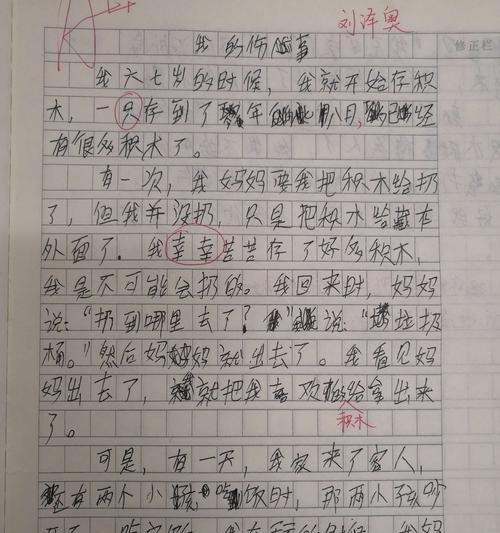 A++
刘泽奥
我的伤心事
修正栏
我六七岁的时候，我就开始存积
木，一只存到了年八月，已经
有很多积木了。
有一次，我妈妈要我把积木给扔
了，但我并没扔，只是把积木给藏在
外面了。我幸幸苦苦存了好多积木，
我是不可能会扔的。我回来时，妈妈
说：“扔到哪里去了？”说：“垃圾
桶。”然后妈妈就出去了。我看见妈
妈出去了，就把我喜欢给拿出来
积木
了。
可是，有一天，我家来了客人，
还有两个小孩，吃饭时，那两小孩吵